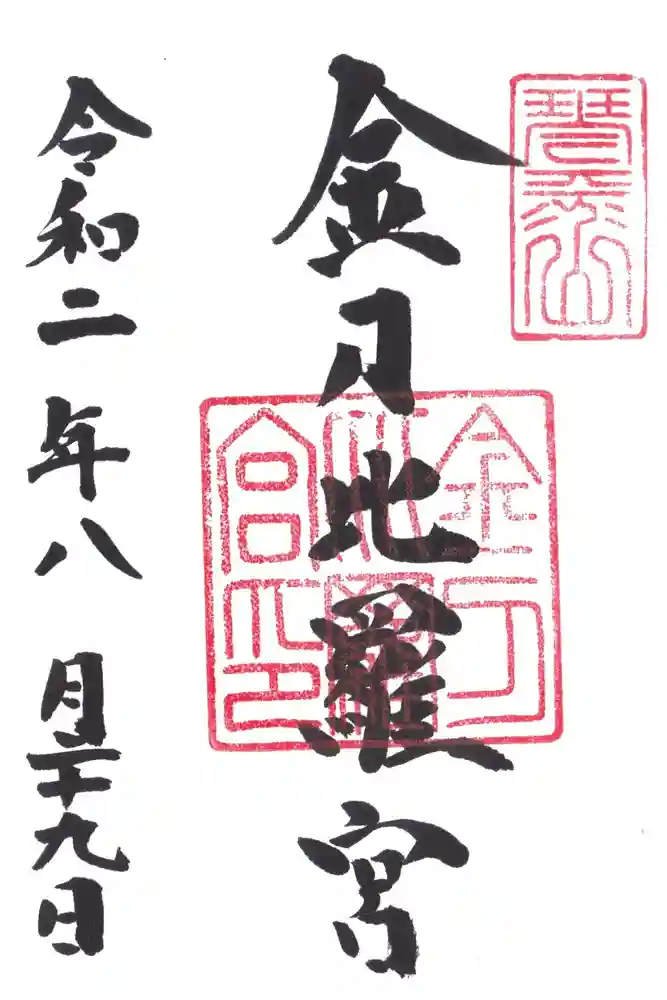 琴平山
金刀比羅宮
金刀
比羅
宮印
令和二年八月二十九日